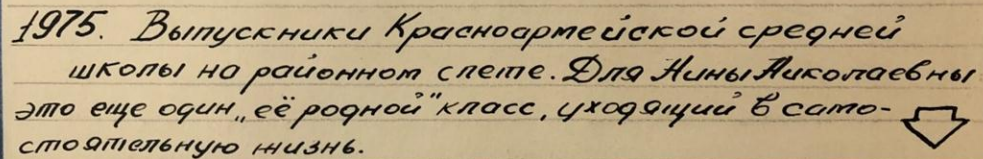 1975. Выпускники Красноармейской средней
школы на районном слете. Для Нины Николаевны
это еще один „её родной" класс, уходящий в само-
стоятельную жизнь.